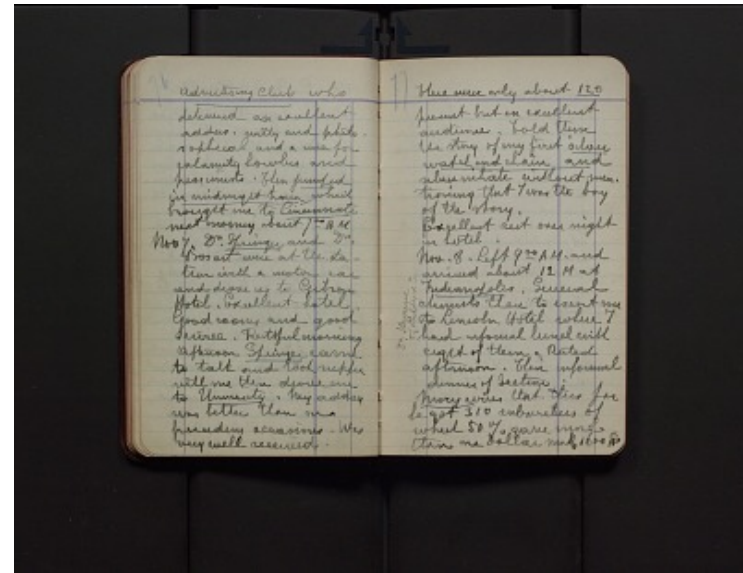 Advertising Club who
delivered an excellent
address, and
and a
calamity howlers and
pessimists. Then jumped
in midnight train which
brought me to Cincinnati
next morning about 7 00 A M
Nov 7. Dr. Springer and Dr.
were at the sta-
tion with a motor car
and drove us to Gibson
Hotel. Excellent hotel
Good rooms and good
service. Restful morning
afternoon Springer came
to talk and took supper
with me then drove me
to University. My address
was better than on
preceding occasions. Was
very well received.
17
there were only about 120
present but an excellent
audience. Told them
the story of my first silver
watch and chain and
silver nitrate without men-
tioning that I was the boy
of the story.
Excellent rest over night
in hotel.
Nov. 8. Left 9 00 A.M. and
arrived about 12 M at
Indianapolis. Several
chemists there to escort me
to Lincoln Hotel where I
had informal lunch with
eight of them. Rested
afternoon. Then informal
dinner of Section.
wires that this far
got 310 of
which 50% gave more
than one Dollar